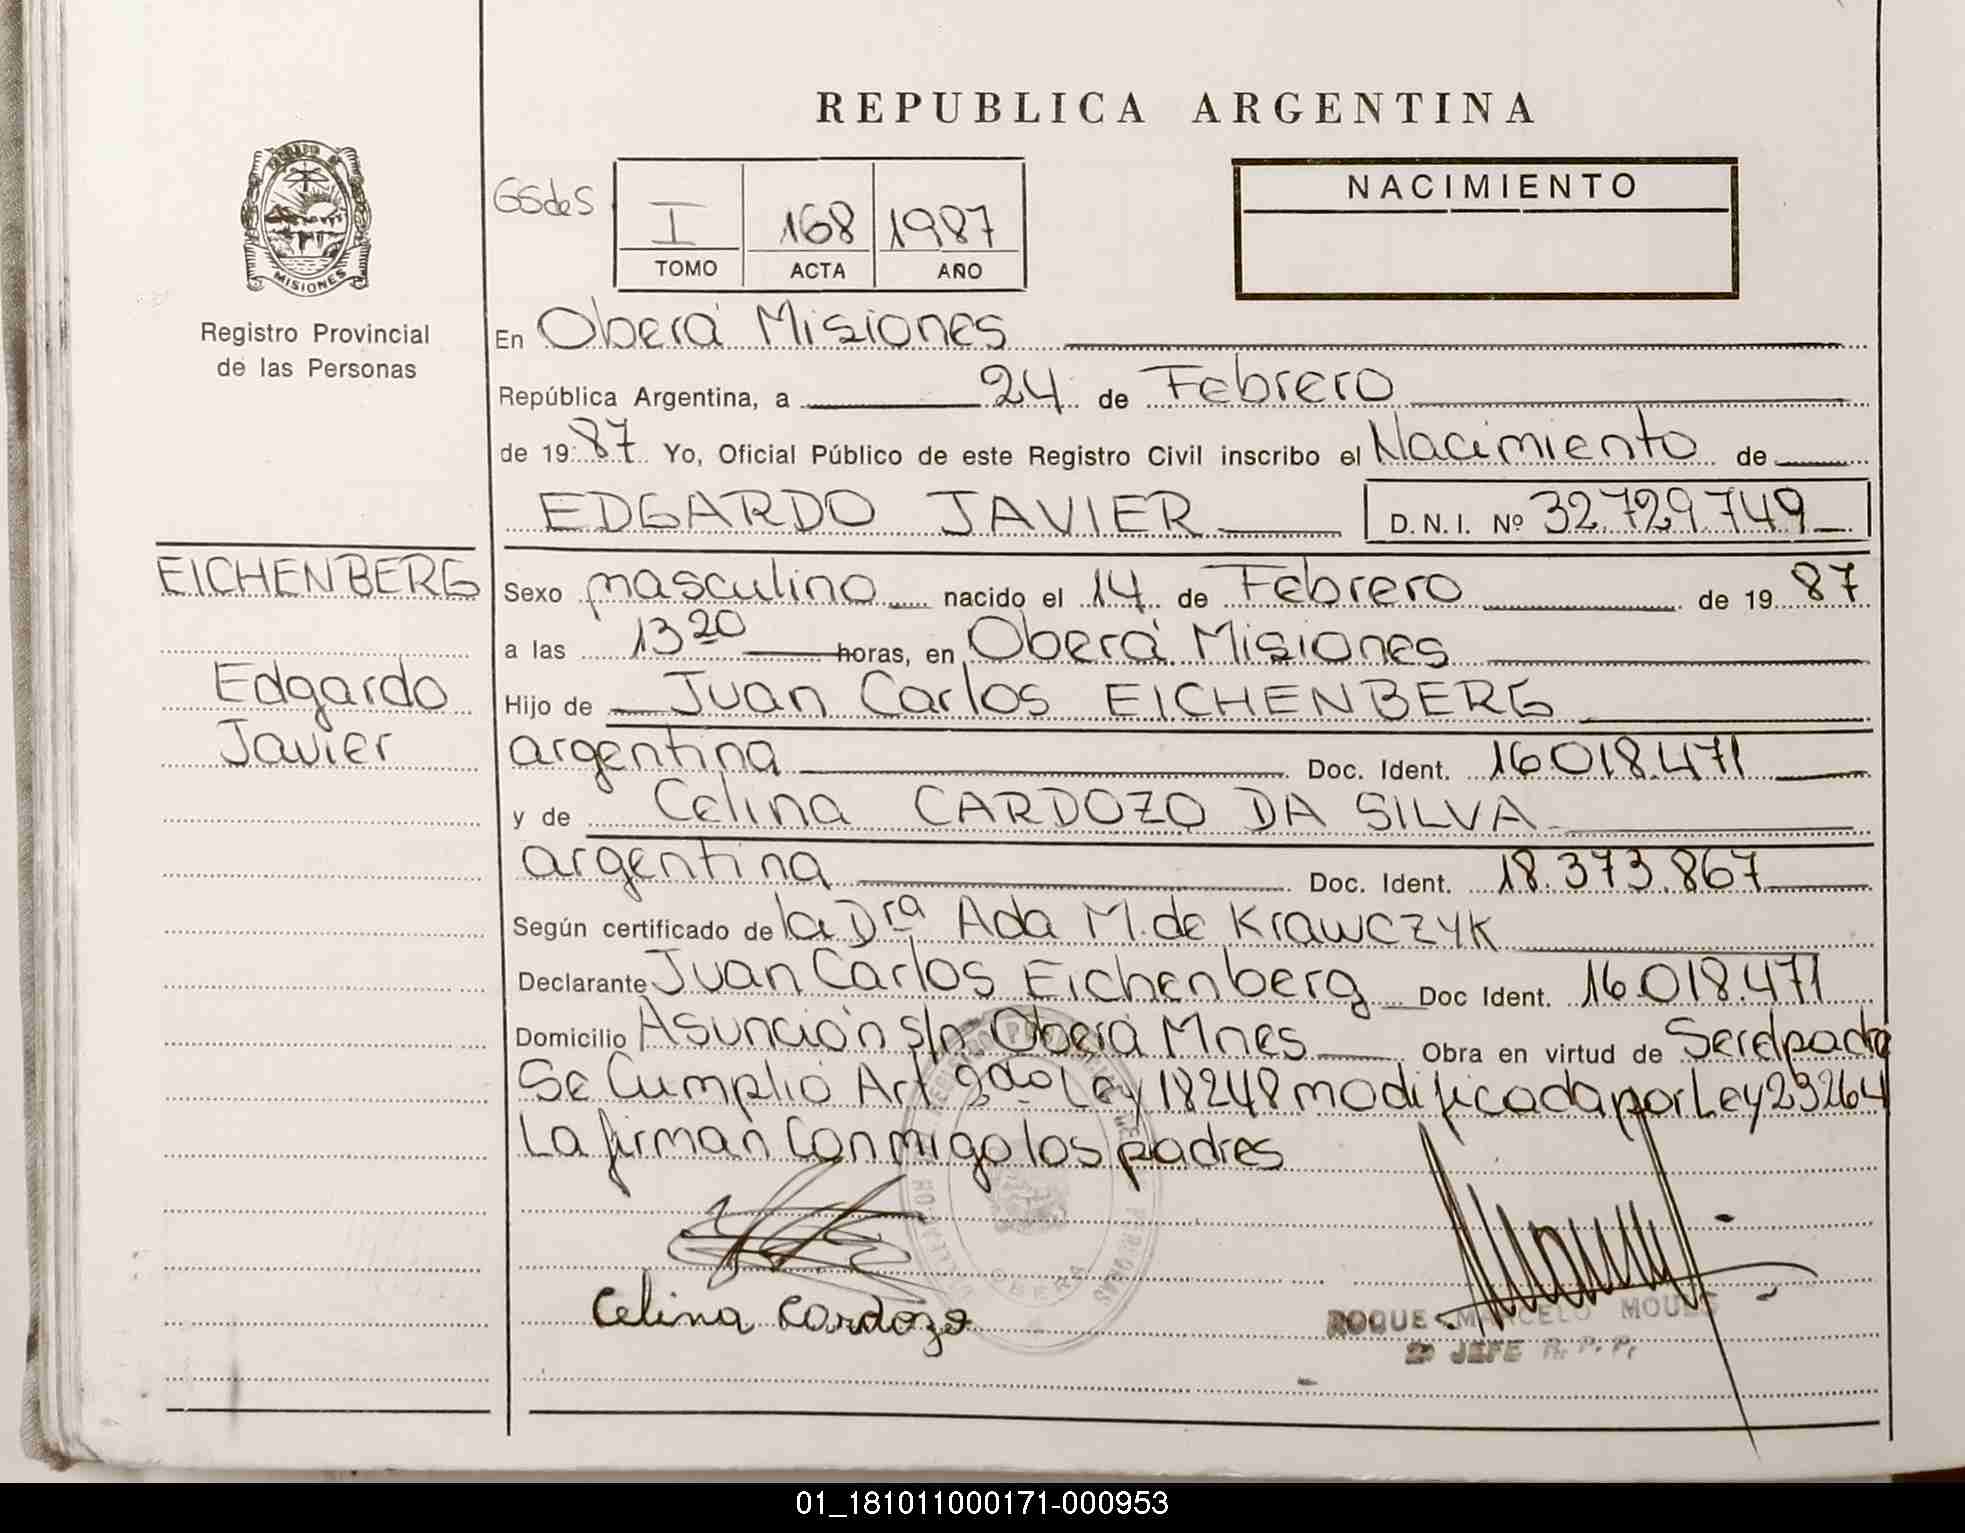 REPUBLICA ARGENTINA
MISIONES
Registro Provincial
de las Personas
GSdeS
I 168 1987
TOMO ACTA AÑO
NACIMIENTO
En Oberá Misiones
República Argentina, a 24 de Febrero
de 1987 Yo, Oficial Público de este Registro Civil inscribo el Nacimiento de
EDGARDO JAVIER D.N.I. Nº 32.729.749
EICHENBERG
Edgardo
Javier
Sexo masculino nacido el 14 de Febrero de 1987
a las 13 20 horas, en Oberá Misiones
Hijo de Juan Carlos EICHENBERG
argentina Doc. Ident. 16.018.471
y de Celina CARDOZO DA SILVA
argentina Doc. Ident. 18.373.867
Según certificado de la Dra Ada M. de Krawczyk
Declarante Juan Carlos Eichenberg Doc Ident. 16.018.471
Domicilio Asunción s/n Oberá Mnes Obra en virtud de Serelpadre
Se Cumplió Art 2do Ley 18248 modificada por Ley 23264
La firman conmigo los padres
Celina Cardozo
ROQUE MARCELO
2º JEFE R.P.P.
OBERA
01_181011000171-000953